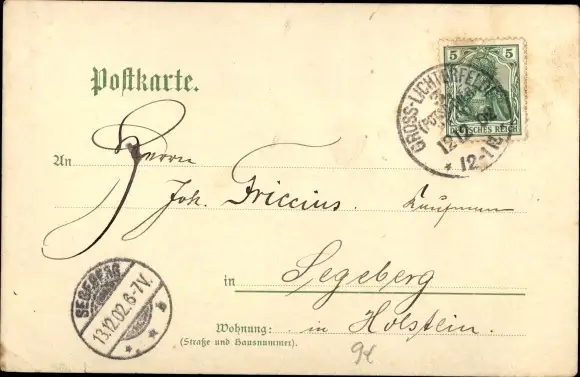 5 5
Postkarte.
DEUTSCHES REICH
GROSS-LICHTERFELDE
12.12.02
* 12-1
An Herrn
Joh. Friccius. Kaufmann
in Segeberg
SEGEBERG
13.12.02.6-7V.
Wohnung: in Holstein.
(Straße und Hausnummer).